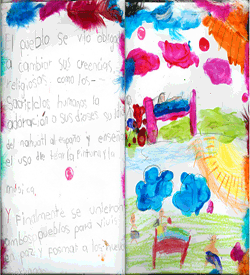 El pueblo se vio obligado
a cambiar sus creencias
religiosas; como los
Sacrificios humanos la
adoración a sus dioses su
del nahuatl al español y enseño
el uso de telar la pintura y la
música.
Y Finalmente se unieron
ambos pueblos para vivir
en paz y